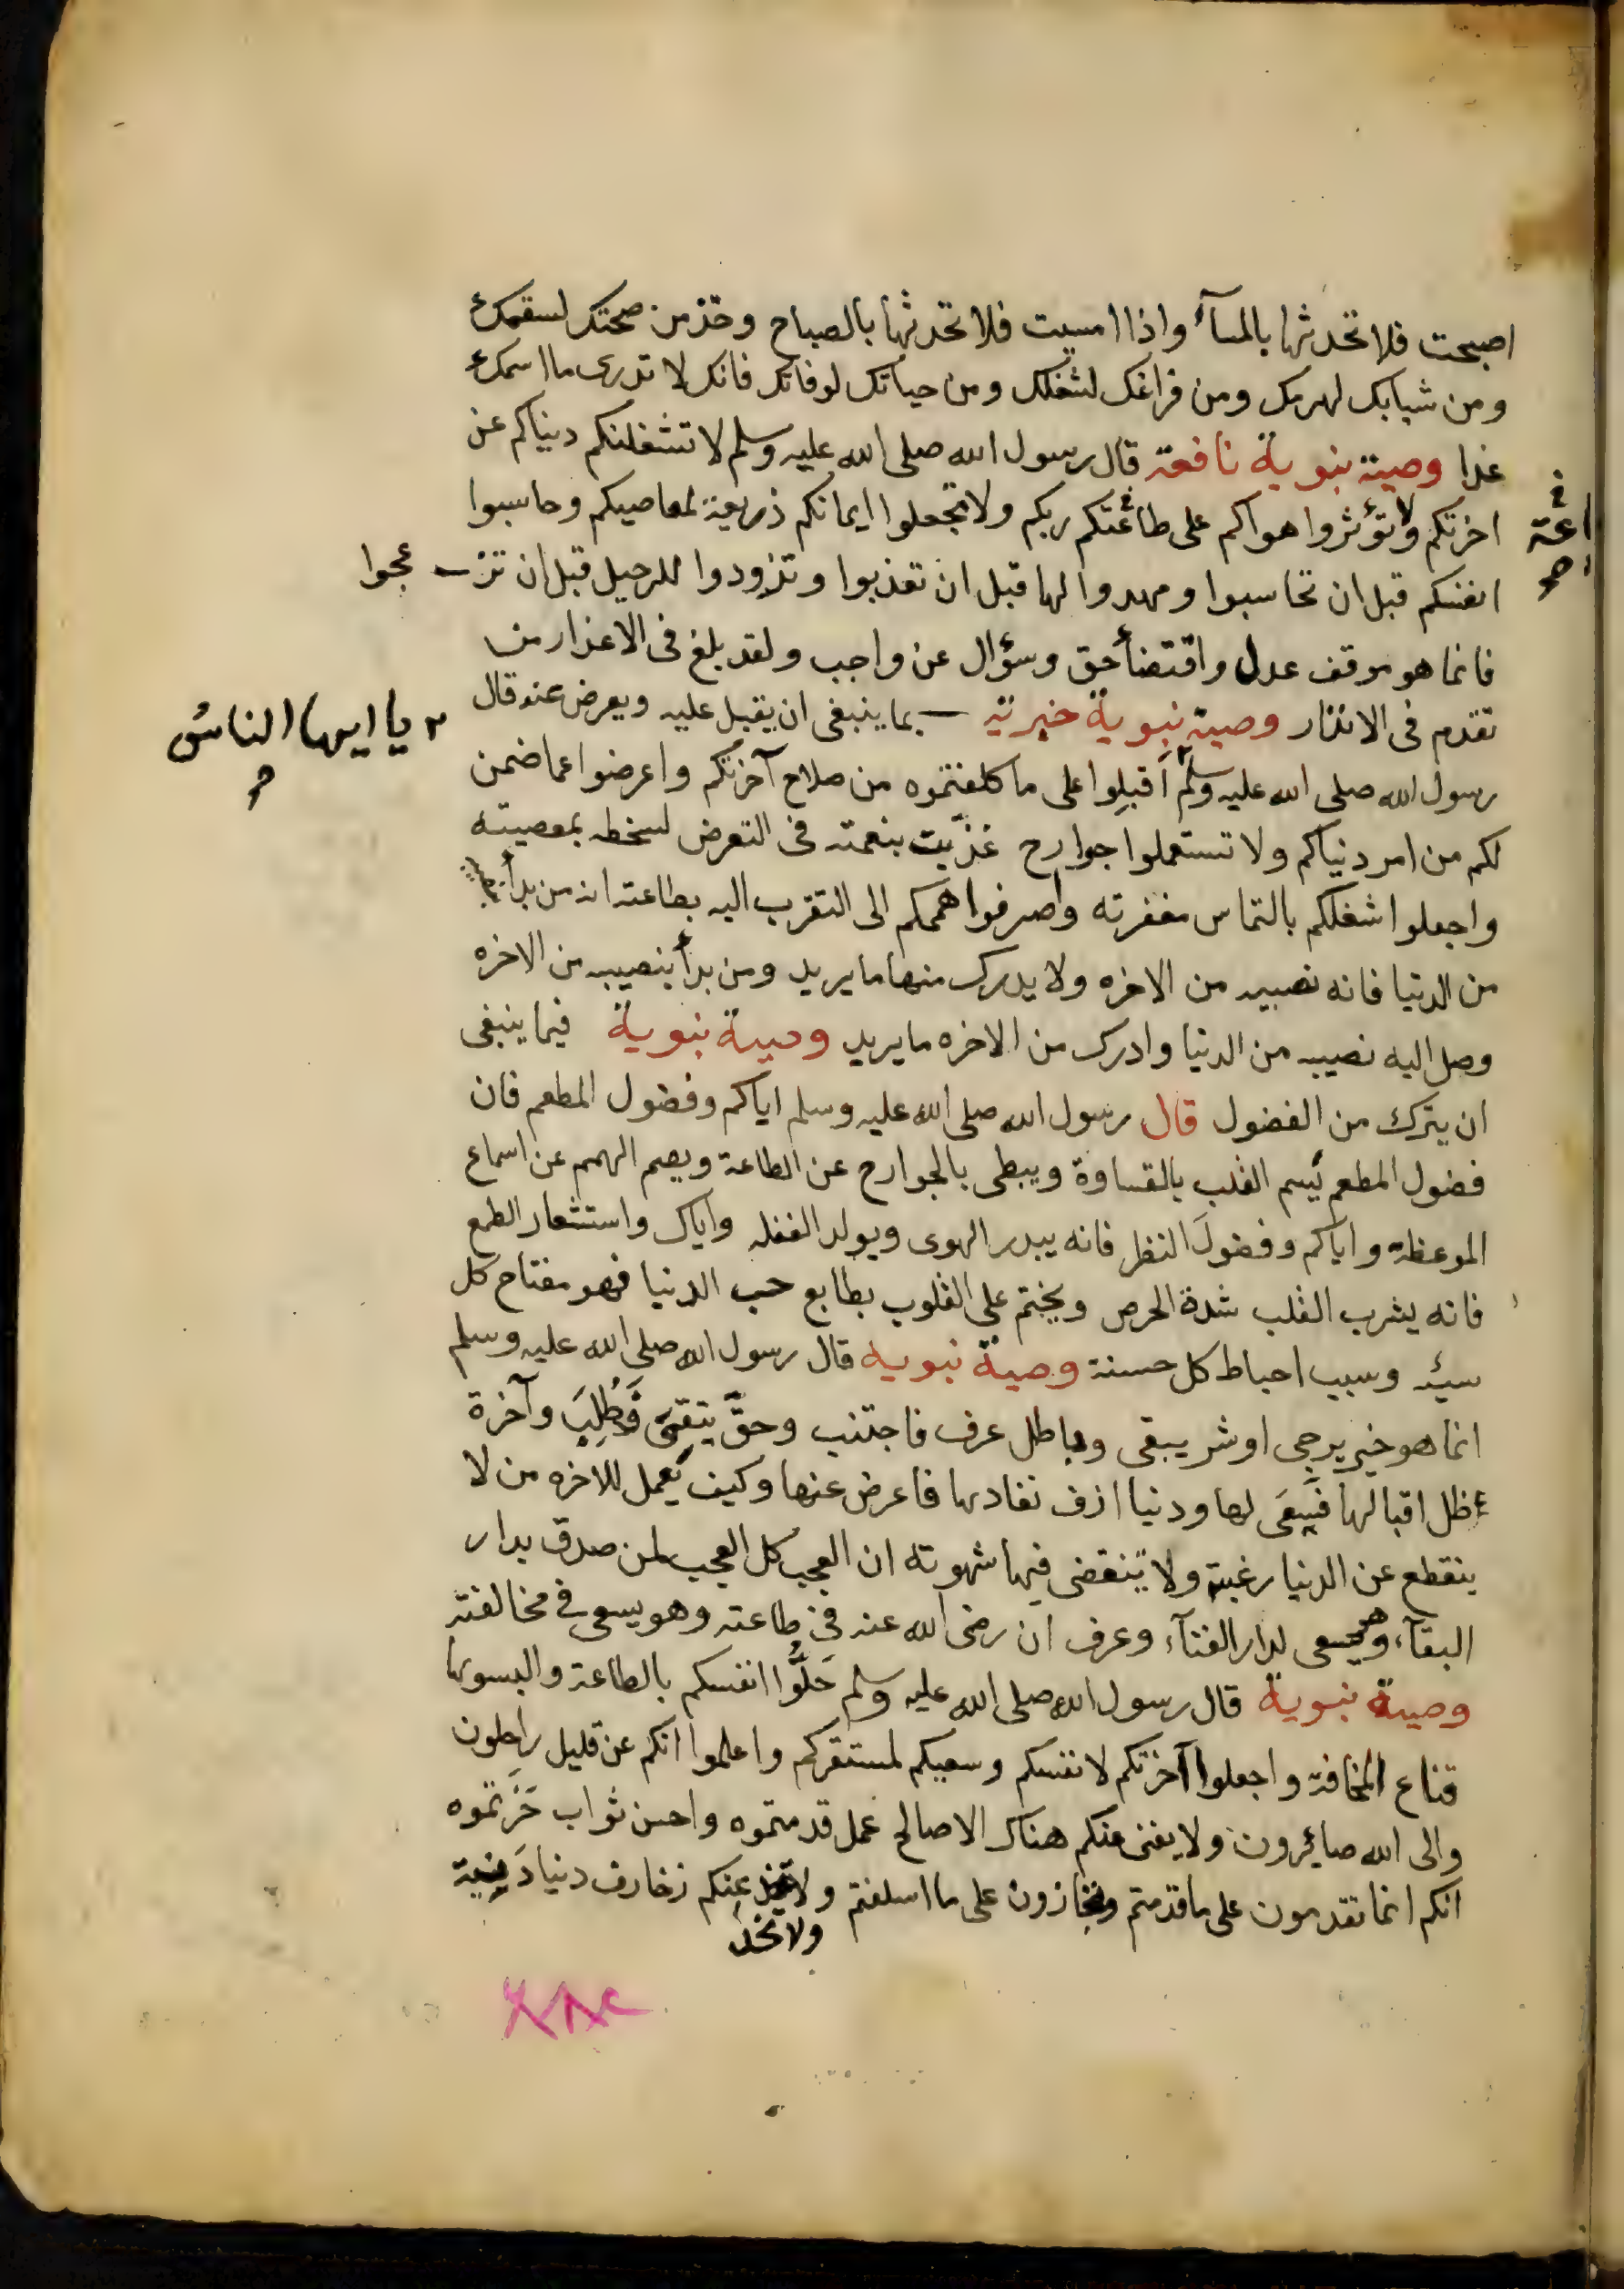 اصبحت فلا تحدثها بالمسآء واذا امسيت فلا تحدثها بالصباح وخذ من صحتك لسقمك
ومن شبابك لهرمك ومن فراغك لشغلك ومن حياتك لوفاتك فانك لا تدرى ما اسمك
غدا وصية نبوية نافعة قال رسول الله صلى الله عليه وسلم لا تشغلنكم دنياكم عن
اخرتكم ولا تؤثروا هواكم على طاعتكم ربكم ولا تجعلوا ايمانكم ذريعة لمعاصيكم وحاسبوا
انفسكم قبل ان تحاسبوا ومهدوا لها قبل ان تعذبوا وتزودوا للرحيل قبل ان تز عجوا
فانما هو موقف عدل واقتضأ حق وسؤال عن واجب ولقد بلغ فى الاعذار من
تقدم فى الانذار وصية نبوية خبرية بما ينبغى ان يقبل عليه ويعرض عنه قال
يا ايها الناس
رسول الله صلى الله عليه وسلم اقبلوا على ما كلفتموه من صلاح آخرتكم واعرضوا عما ضمن
لكم من امر دنياكم ولا تستعملوا جوارح غذيت بنعمته فى التعرض لسخطه بمعصيته
واجعلوا شغلكم بالتماس مغفرته واصرفوا هممكم الى التقرب اليه بطاعته انه من بدأ
من الدنيا فاته نصيبه من الاخره ولا يدرك منها ما يريد ومن بدأ بنصيبه من الاخره
وصل اليه نصيبه من الدنيا وادرك من الاخره ما يريد وصية نبوية فيما ينبغى
ان يترك من الفضول قال رسول الله صلى الله عليه وسلم اياكم وفضول المطعم فان
فضول المطعم يسم القلب بالقساوة ويبطى بالجوارح عن الطاعة ويصم الهمم عن اسماع
الموعظة واياكم وفضول النظر فانه يبدر الهوى ويولد الغفله واياك واستشعار الطمع
فانه يشرب القلب شدة الحرص ويختم على القلوب بطابع حب الدنيا فهو مفتاح كل
سيئه وسبب احباط كل حسنة وصية نبويه قال رسول الله صلى الله عليه وسلم
انما هو خير يرجى او شر يبقى وباطل عرف فاجتنب وحق يتقى فطلب وآخرة
اظل اقبالها فسعى لها ودنيا ازف نفادها فاعرض عنها وكيف يعمل للاخره من لا
ينقطع عن الدنيا رغبته ولا ينقضى فيها شهوته ان العجب كل العجب لمن صدق بدار
البقآء وهو يسعى لدار الفنآء وعرف ان رضى الله عنه فى طاعته وهو يسعى فى مخالفته
وصية نبوية قال رسول الله صلى الله عليه وسلم حلوا انفسكم بالطاعة والبسوها
قناع المخافة واجعلوا آخرتكم لانفسكم وسعيكم لمستقركم واعلموا انكم عن قليل راحلون
والى الله صائرون ولا يغنى عنكم هناك الا صالح عمل قدمتموه واحسن ثواب حزتموه
انكم انما تقدمون على ما قدمتم وتجازون على ما اسلفتم ولا تخدعنكم زخارف دنيا دنية
ولا تخد